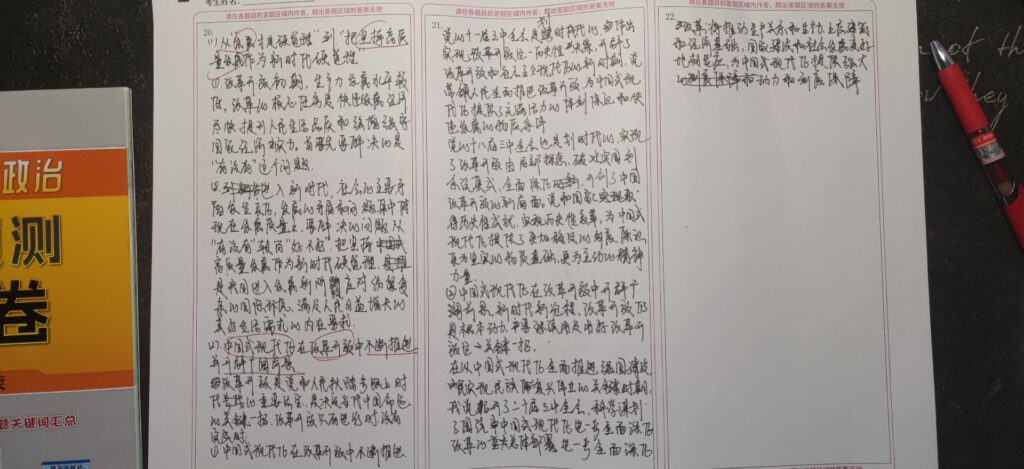 考生姓名:
请在各题目的答题区域内作答,超出答题区域的答案无效
20.
(1) 从“发展才是硬道理”到“把坚持高质
量发展作为新时代硬道理
①改革开放初期,生产力发展水平较
低,改革的核心任务是快速发展经济
尽快提升人民生活品质和
国家经济实力,首要先要解决的是
“有没有”这个问题.
②进入新时代,社会的主要矛
盾发生变化,发展的矛盾和问题集中体
现在发展质量上,要解决的问题从
“有没有”转而“好不好”把坚持
高质量发展作为新时代硬道理,是
我国进入发展新阶段应对
的国际形势,满足人民日益增长的
美好生活需求的内在要求
(2). 中国式现代化在改革开放中不断推进
并开辟广阔前景
改革开放是党和人民
的重要法宝,是决定当代中国命运
的关键一招,改革开放只有进行时,没有
完成时.
①中国式现代化在改革开放中不断推进.
请在各题目的答题区域内作答,超出答题区域的答案无效
21.
党的十一届三中全会是划时代的,
实现改革开放这一历史性决策,开创了
改革开放和社会主义现代化的新时期,党
带领人民全面推进改革开放,为中国式现
代化提供了充满活力的体制保证和快
速发展的物质条件
党的十八届三中全会也是划时代的,实现
了改革开放由局部探索、破冰突围到
系统集式、全面深化的,开创了中国
改革开放的新局面,党和国家取
得历史性成就、实现历史性变革,为中国式
现代化提供了更加稳定的制度保证
更为坚实的物质基础,更为主动的精神
力量.
②中国式现代化在改革开放中开辟广
阔前景,新时代新征程,改革开放仍
是根本动力,要继续用好改革开
放这一关键一招.
在以中国式现代化全面推进强国建设
实现民族复兴伟业的关键时期,
我党召开了二十届三中全会,科学谋划
了围绕中国式现代化进一步全面深化
改革的总体部署,进一步全面深化
请在各题目的答题区域内作答,超出答题区域的答案无效
22.
改革,将推动生产关系和生产力、上层建筑
和经济基础、国家治理和社会发展更好
地相适应,为中国式现代化提供强大
动力和制度保障
政治
测
卷
题关键词汇总